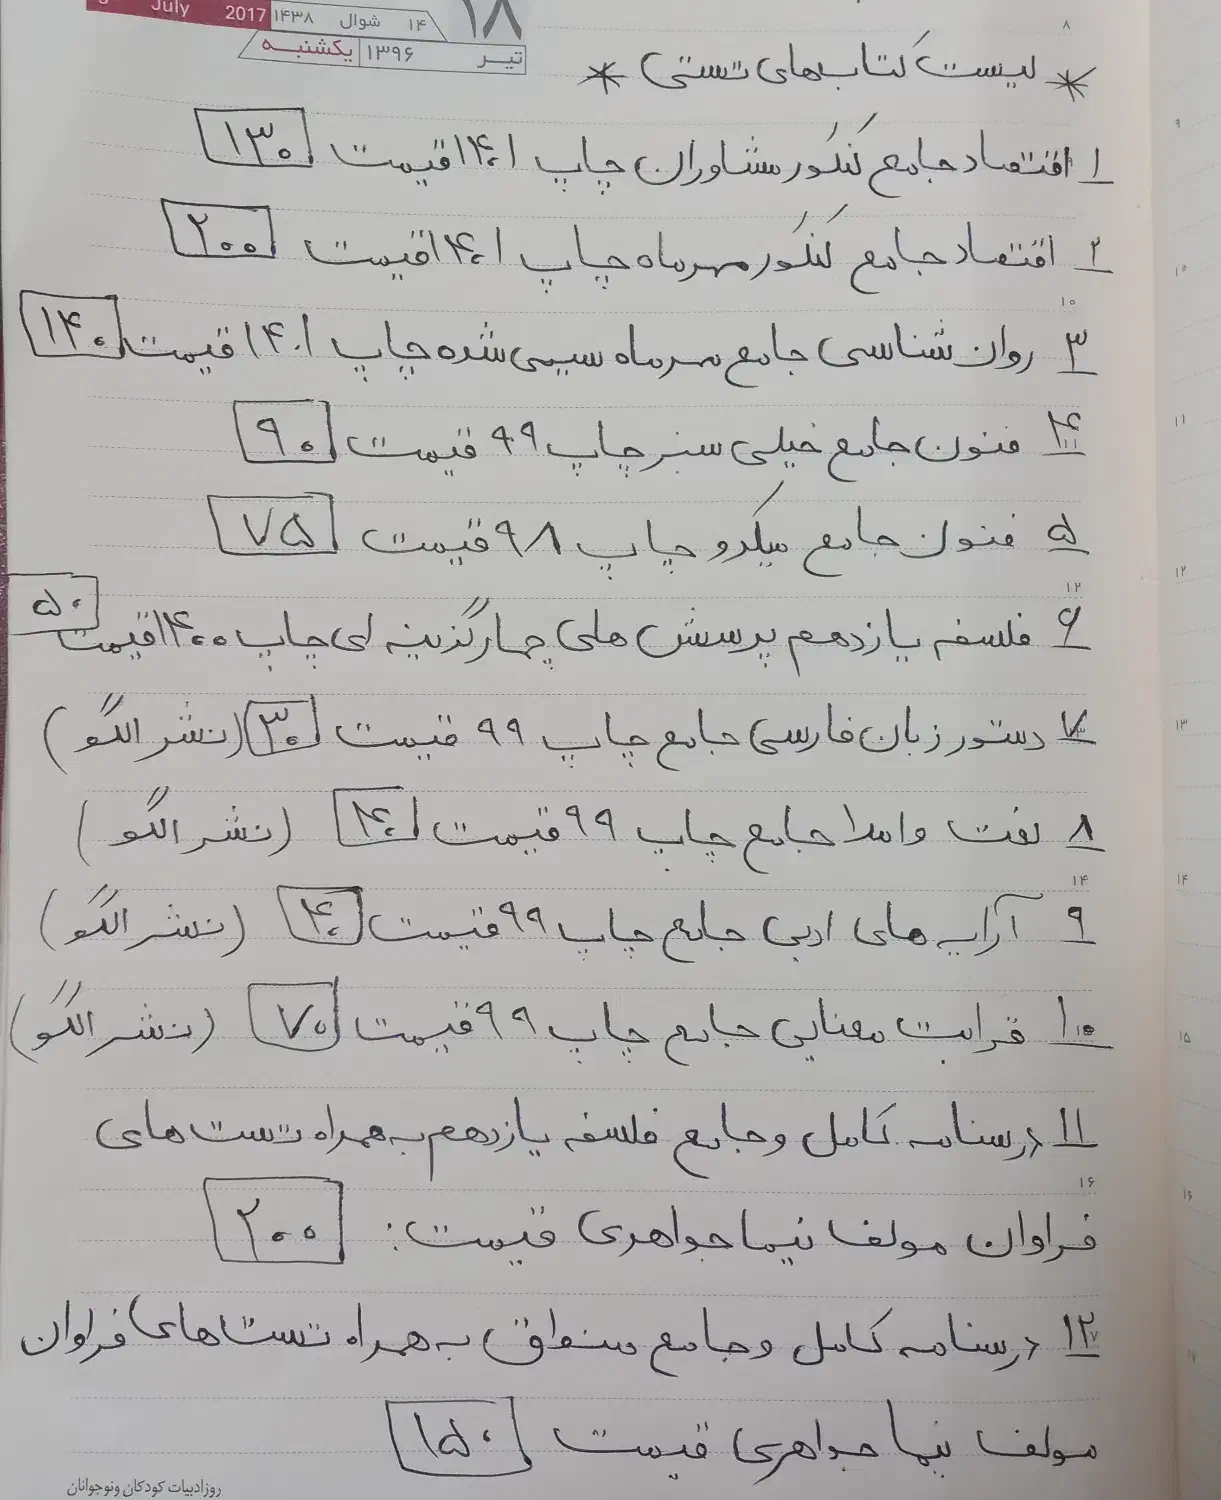 July 2017
۱۴ شوال ۱۴۳۸
۱۸
تیر ۱۳۹۶ یکشنبه
۸
* لیست کتاب‌های تستی *
۹
۱ اقتصاد جامع کنکور مشاوران چاپ ۱۴۰۱ قیمت ۱۳۰
۲ اقتصاد جامع کنکور مهرماه چاپ ۱۴۰۱ قیمت ۲۰۰
۱۰
۳ روان شناسی جامع مهرماه سیمی شده چاپ ۱۴۰۱ قیمت ۱۴۰
۱۱
۴ فنون جامع خیلی سبز چاپ ۹۹ قیمت ۹۰
۵ فنون جامع میکرو چاپ ۹۸ قیمت ۷۵
۱۲
۶ فلسفه یازدهم پرسش های چهارگزینه ای چاپ ۱۴۰۰ قیمت ۵۰
۱۳
۷ دستور زبان فارسی جامع چاپ ۹۹ قیمت ۳۰ (نشر الگو)
۸ لغت و املا جامع چاپ ۹۹ قیمت ۴۰ (نشر الگو)
۱۴
۹ آرایه های ادبی جامع چاپ ۹۹ قیمت ۴۰ (نشر الگو)
۱۵
۱۰ قرابت معنایی جامع چاپ ۹۹ قیمت ۷۰ (نشر الگو)
۱۱ درسنامه کامل و جامع فلسفه یازدهم به همراه تست های
۱۶
فراوان مولف نیما جواهری قیمت: ۲۰۰
۱۷
۱۲ درسنامه کامل و جامع منطق به همراه تست های فراوان
مولف نیما جواهری قیمت ۱۵۰
روز ادبیات کودکان و نوجوانان